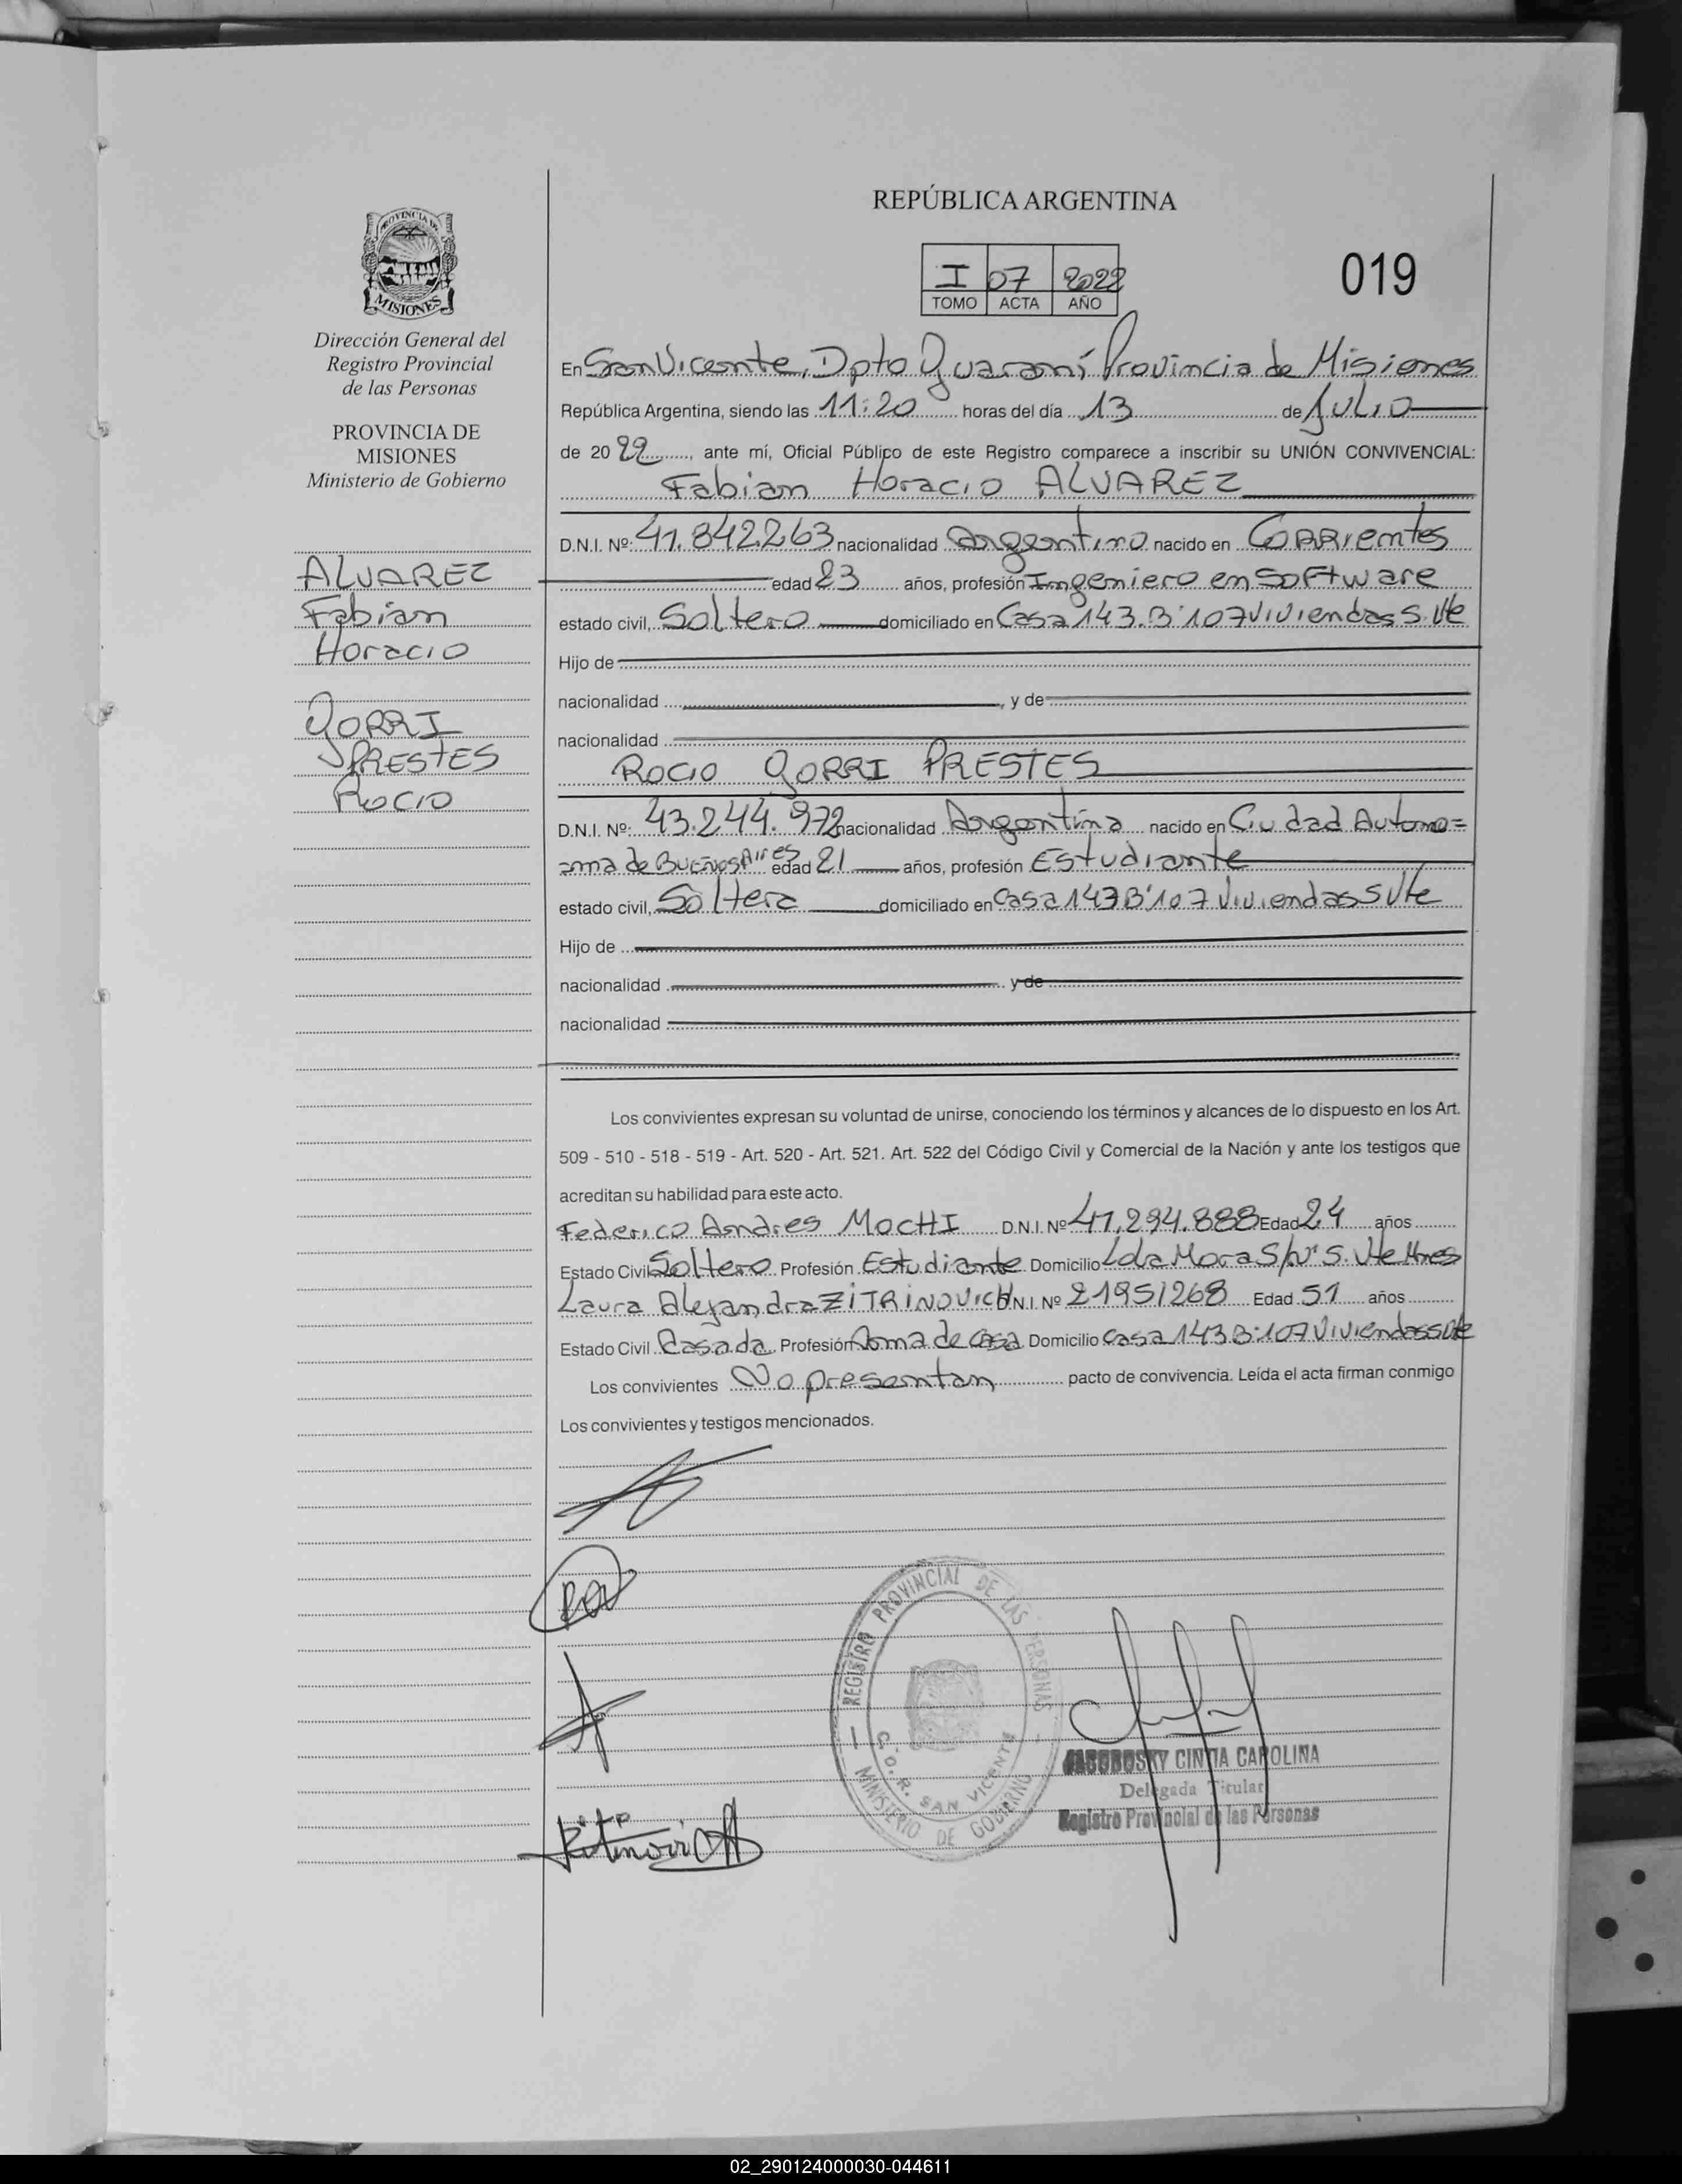 REPÚBLICA ARGENTINA
I 07 2022
TOMO ACTA AÑO
019
PROVINCIA DE
MISIONES
Dirección General del
Registro Provincial
de las Personas
PROVINCIA DE
MISIONES
Ministerio de Gobierno
ALVAREZ
Fabian
Horacio
GORRI
PRESTES
Rocio
En San Vicente, Dpto Guaraní Provincia de Misiones
República Argentina, siendo las 11:20 horas del día 13 de Julio
de 2022, ante mí, Oficial Público de este Registro comparece a inscribir su UNIÓN CONVIVENCIAL:
Fabian Horacio ALVAREZ
D.N.I. Nº: 41.842.263 nacionalidad Argentino nacido en Corrientes
edad 23 años, profesión Ingeniero en Software
estado civil, Soltero domiciliado en Casa 143.B:107 Viviendas S. Vte
Hijo de
nacionalidad , y de
nacionalidad
Rocio GORRI PRESTES
D.N.I. Nº: 43.244.972 nacionalidad Argentina nacido en Ciudad Autono=
oma de Buenos Aires edad 21 años, profesión Estudiante
estado civil, Soltera domiciliado en Casa 143 B:107 Viviendas S Vte
Hijo de
nacionalidad y de
nacionalidad
Los convivientes expresan su voluntad de unirse, conociendo los términos y alcances de lo dispuesto en los Art.
509 - 510 - 518 - 519 - Art. 520 - Art. 521. Art. 522 del Código Civil y Comercial de la Nación y ante los testigos que
acreditan su habilidad para este acto.
Federico Andres MOCHI D.N.I. Nº 41.294.888 Edad 24 años
Estado Civil Soltero Profesión Estudiante Domicilio Lda Mora S/nº S. Vte Mnes
Laura Alejandra ZITRINOVICH D.N.I. Nº 21951268 Edad 51 años
Estado Civil Casada Profesión Ama de Casa Domicilio Casa 143 B:107 Viviendas S Vte
Los convivientes No presentan pacto de convivencia. Leída el acta firman conmigo
Los convivientes y testigos mencionados.
REGISTRO PROVINCIAL DE LAS PERSONAS
C.O.R. SAN VICENTE
MINISTERIO DE GOBIERNO
CINTIA CAROLINA
Delegada Titular
Registro Provincial de las Personas
02_290124000030-044611